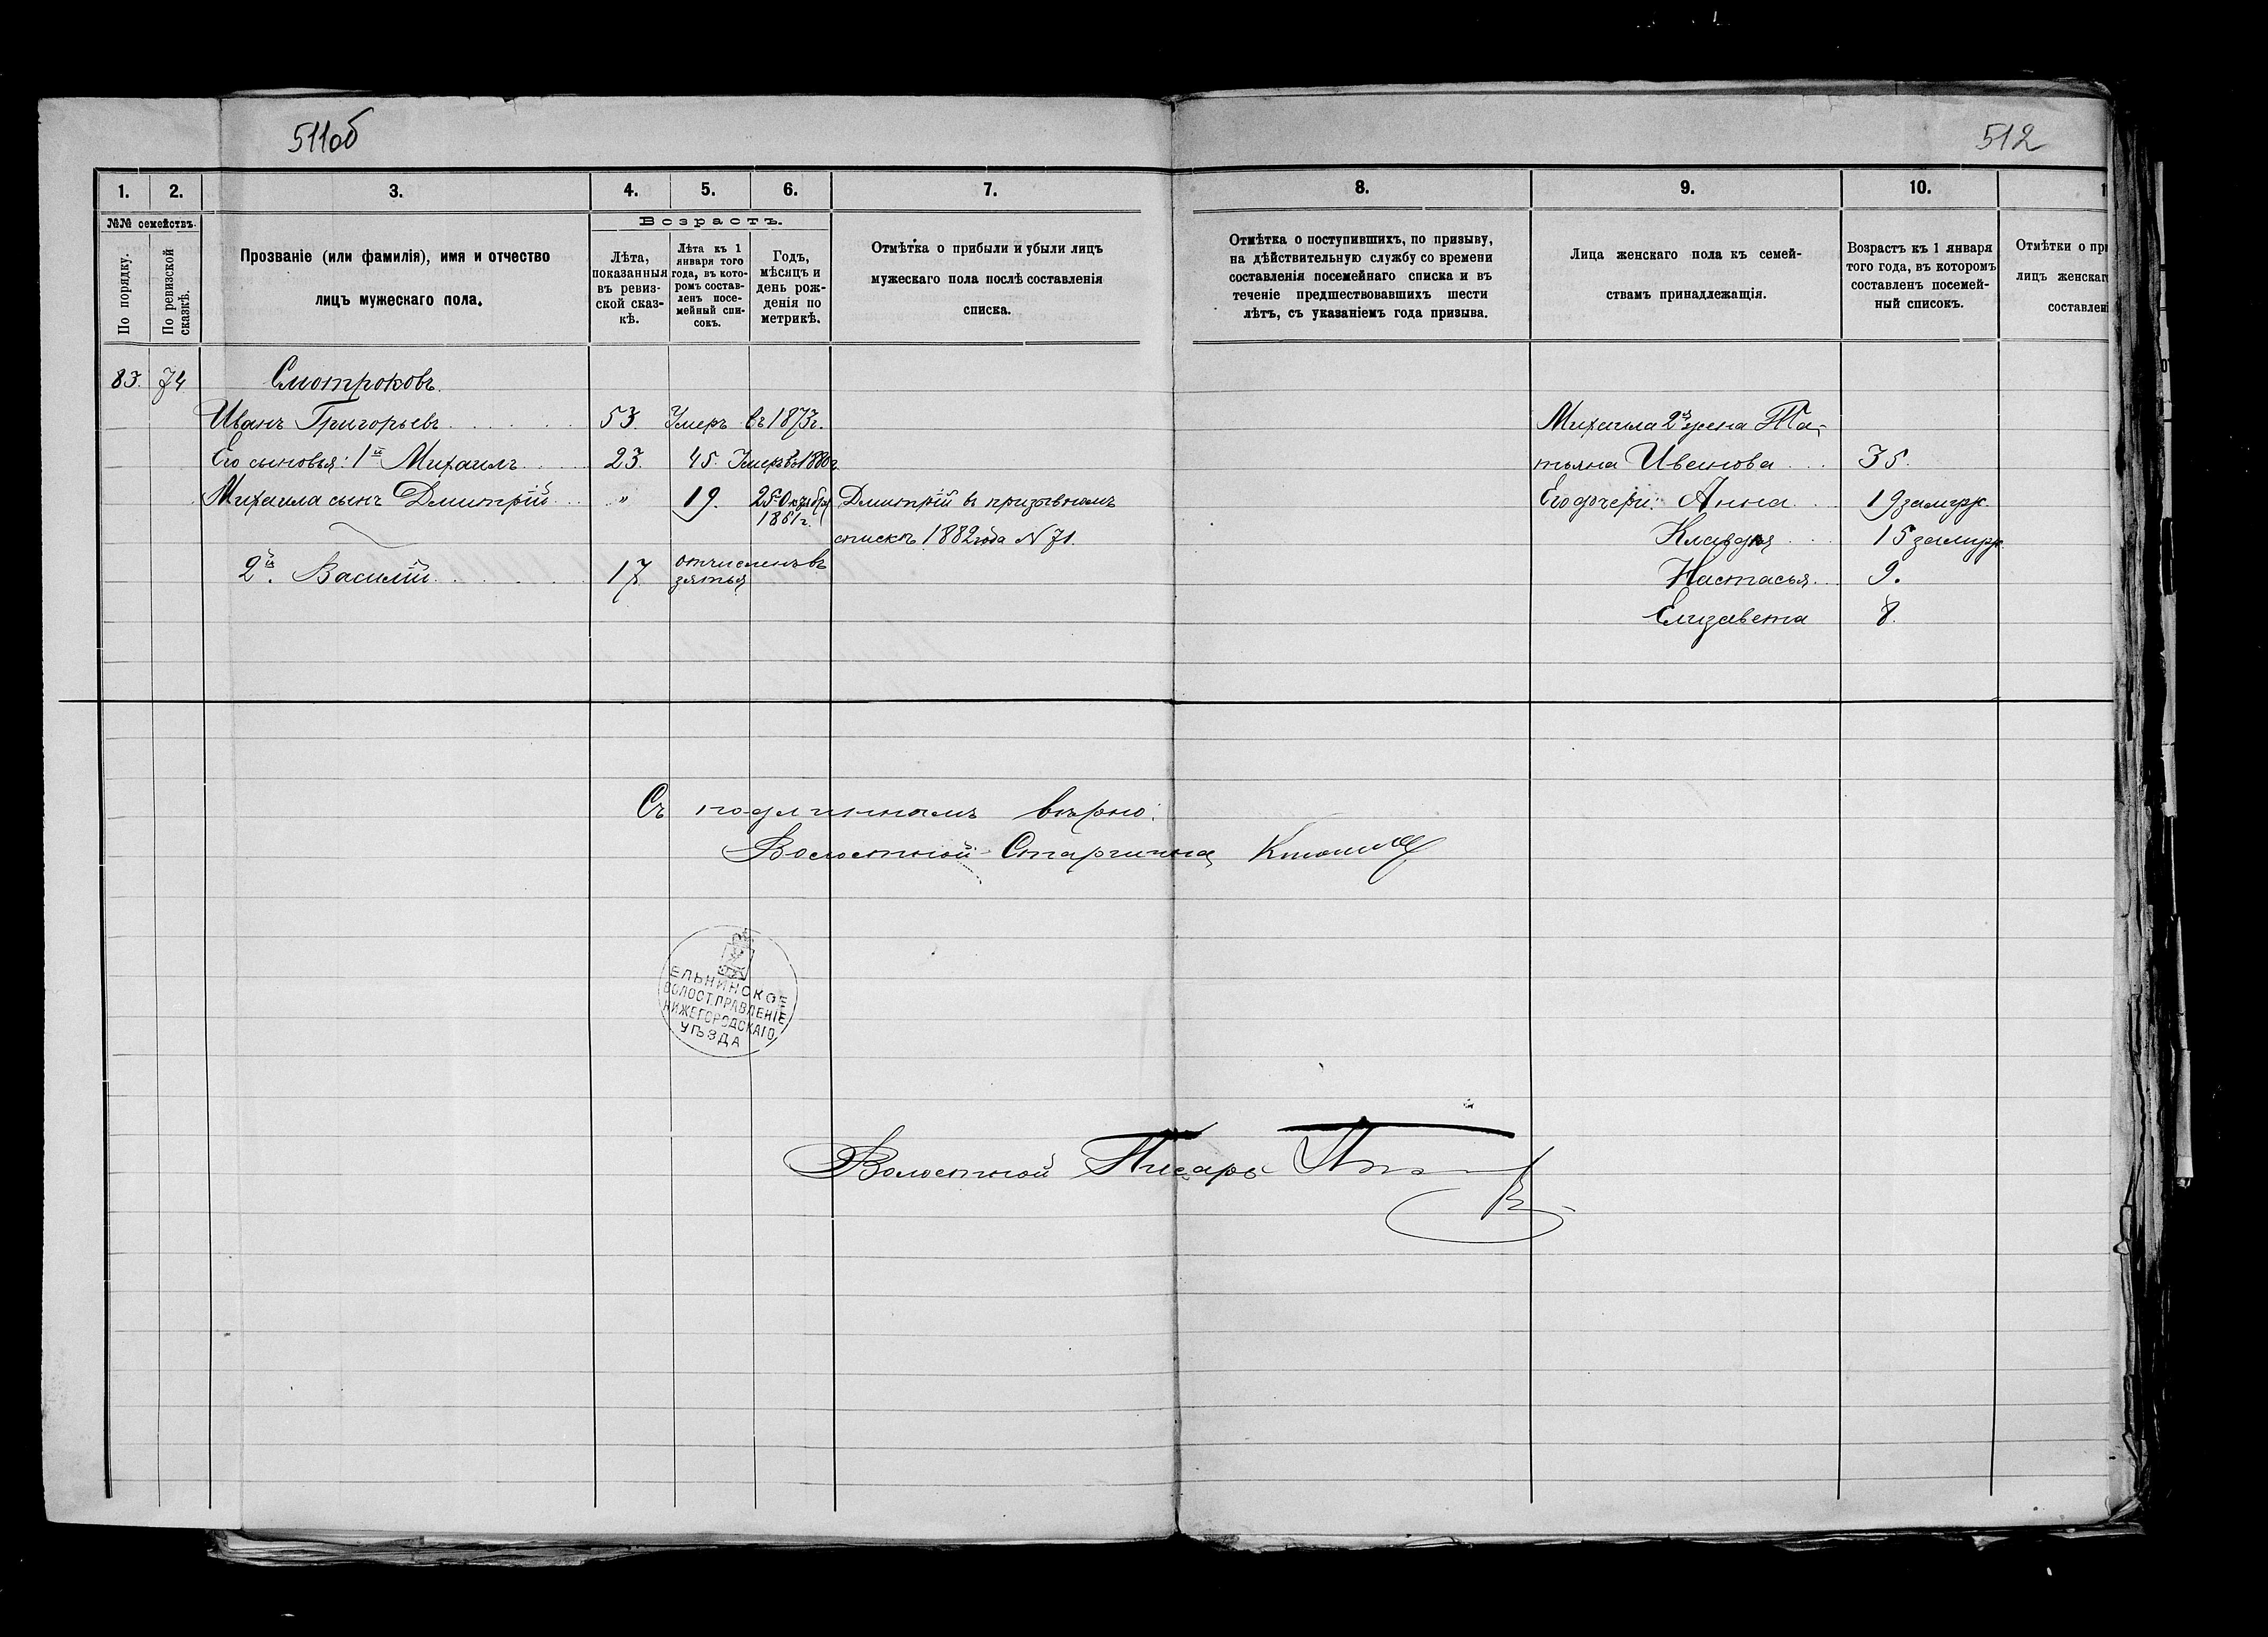 511об
512
1. 2. 3. 4. 5. 6. 7. 8. 9. 10.
№№ семействъ.
По порядку.
По ревизской сказкѣ.
Прозваніе (или фамилія), имя и отчество
лицъ мужескаго пола.
Возрастъ.
Лѣта,
показанныя
въ ревиз-
ской сказ-
кѣ.
Лѣта къ 1
января того
года, въ кото-
ромъ состав-
ленъ посе-
мейный спи-
сокъ.
Годъ,
мѣсяцъ и
день рож-
денія по
метрикѣ.
Отмѣтка о прибыли и убыли лицъ
мужескаго пола послѣ составленія
списка.
Отмѣтка о поступившихъ, по призыву,
на дѣйствительную службу со времени
составленія посемейнаго списка и въ
теченіе предшествовавшихъ шести
лѣтъ, съ указаніемъ года призыва.
Лица женскаго пола къ семей-
ствамъ принадлежащія.
Возрастъ къ 1 января
того года, въ которомъ
составленъ посемей-
ный списокъ.
Отмѣтки о пр
лицъ женскаг
составлен
83. 74 Смотроковъ.
Иванъ Григорьевъ 53. Умеръ въ 1873г. Михаила 2я жена Та-
Его сыновья: 1й Михаилъ 23. 45. Умеръ въ 1880г. тьяна Иванова 35.
Михаила сынъ Дмитрій " 19. 25 Октября Дмитрій въ призывномъ Его дочери: Анна 19 замуж.
1861г.
спискѣ 1882 года N 71. Клавдия 15 замуж.
2й. Василій 17. отчисленъ въ Настасья 9.
зятья
Елизавета 8.
Съ подлиннымъ вѣрно:
Волостной Старшина
ЕЛЬНИНСКОЕ
ВОЛОСТ. ПРАВЛЕНІЕ
НИЖЕГОРОДСКАГО
УѢЗДА
Волостной Писарь